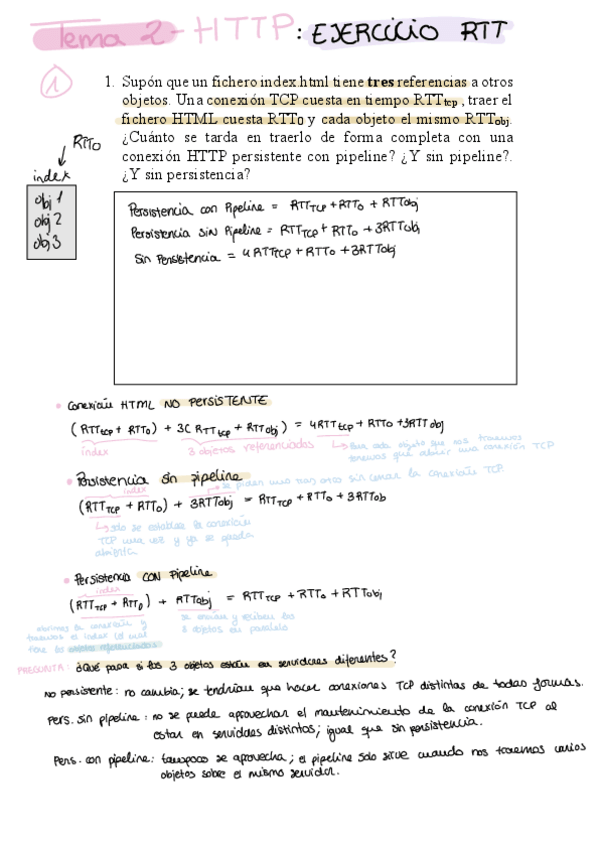 Tema 2 - HTTP: EJERCICIO RTT
1
1. Supón que un fichero index.html tiene tres referencias a otros
objetos. Una conexión TCP cuesta en tiempo RTTtcp, traer el
fichero HTML cuesta RTT0 y cada objeto el mismo RTTobj.
¿Cuánto se tarda en traerlo de forma completa con una
conexión HTTP persistente con pipeline? ¿Y sin pipeline?.
¿Y sin persistencia?
RTTo
index
obj 1
obj 2
obj 3
Persistencia con Pipeline = RTTTCP + RTTo + RTTobj
Persistencia sin Pipeline = RTTTCP + RTTo + 3RTTobj
Sin Persistencia = 4RTTTCP + RTTo + 3RTTobj
Conexión HTML NO PERSISTENTE
(RTTtcp + RTTo) + 3( RTTtcp + RTTobj) = 4RTTtcp + RTTo + 3RTTobj
index
3 objetos referenciados
Por cada objeto que nos traemos
tenemos que abrir una conexión TCP
Persistencia sin pipeline
index
se piden uno tras otro sin cerrar la conexión TCP
(RTTTCP + RTTo) + 3RTTobj = RTTTCP + RTTo + 3RTTob
solo se establece la conexión
TCP una vez y ya se queda
abierta
Persistencia CON Pipeline
index
(RTTTCP + RTTo) + RTTobj = RTTTCP + RTTo + RTTobj
abrimos la conexión y
traemos el index el cual
tiene los objetos referenciados
se envían y reciben los
3 objetos en paralelo
PREGUNTA: ¿Qué pasa si los 3 objetos están en servidores diferentes?
No persistente: no cambia; se tendrían que hacer conexiones TCP distintas de todas formas.
Pers. sin pipeline: no se puede aprovechar el mantenimiento de la conexión TCP al
estar en servidores distintos; igual que sin persistencia.
Pers. con pipeline: tampoco se aprovecha; el pipeline solo sirve cuando nos traemos varios
objetos sobre el mismo servidor.